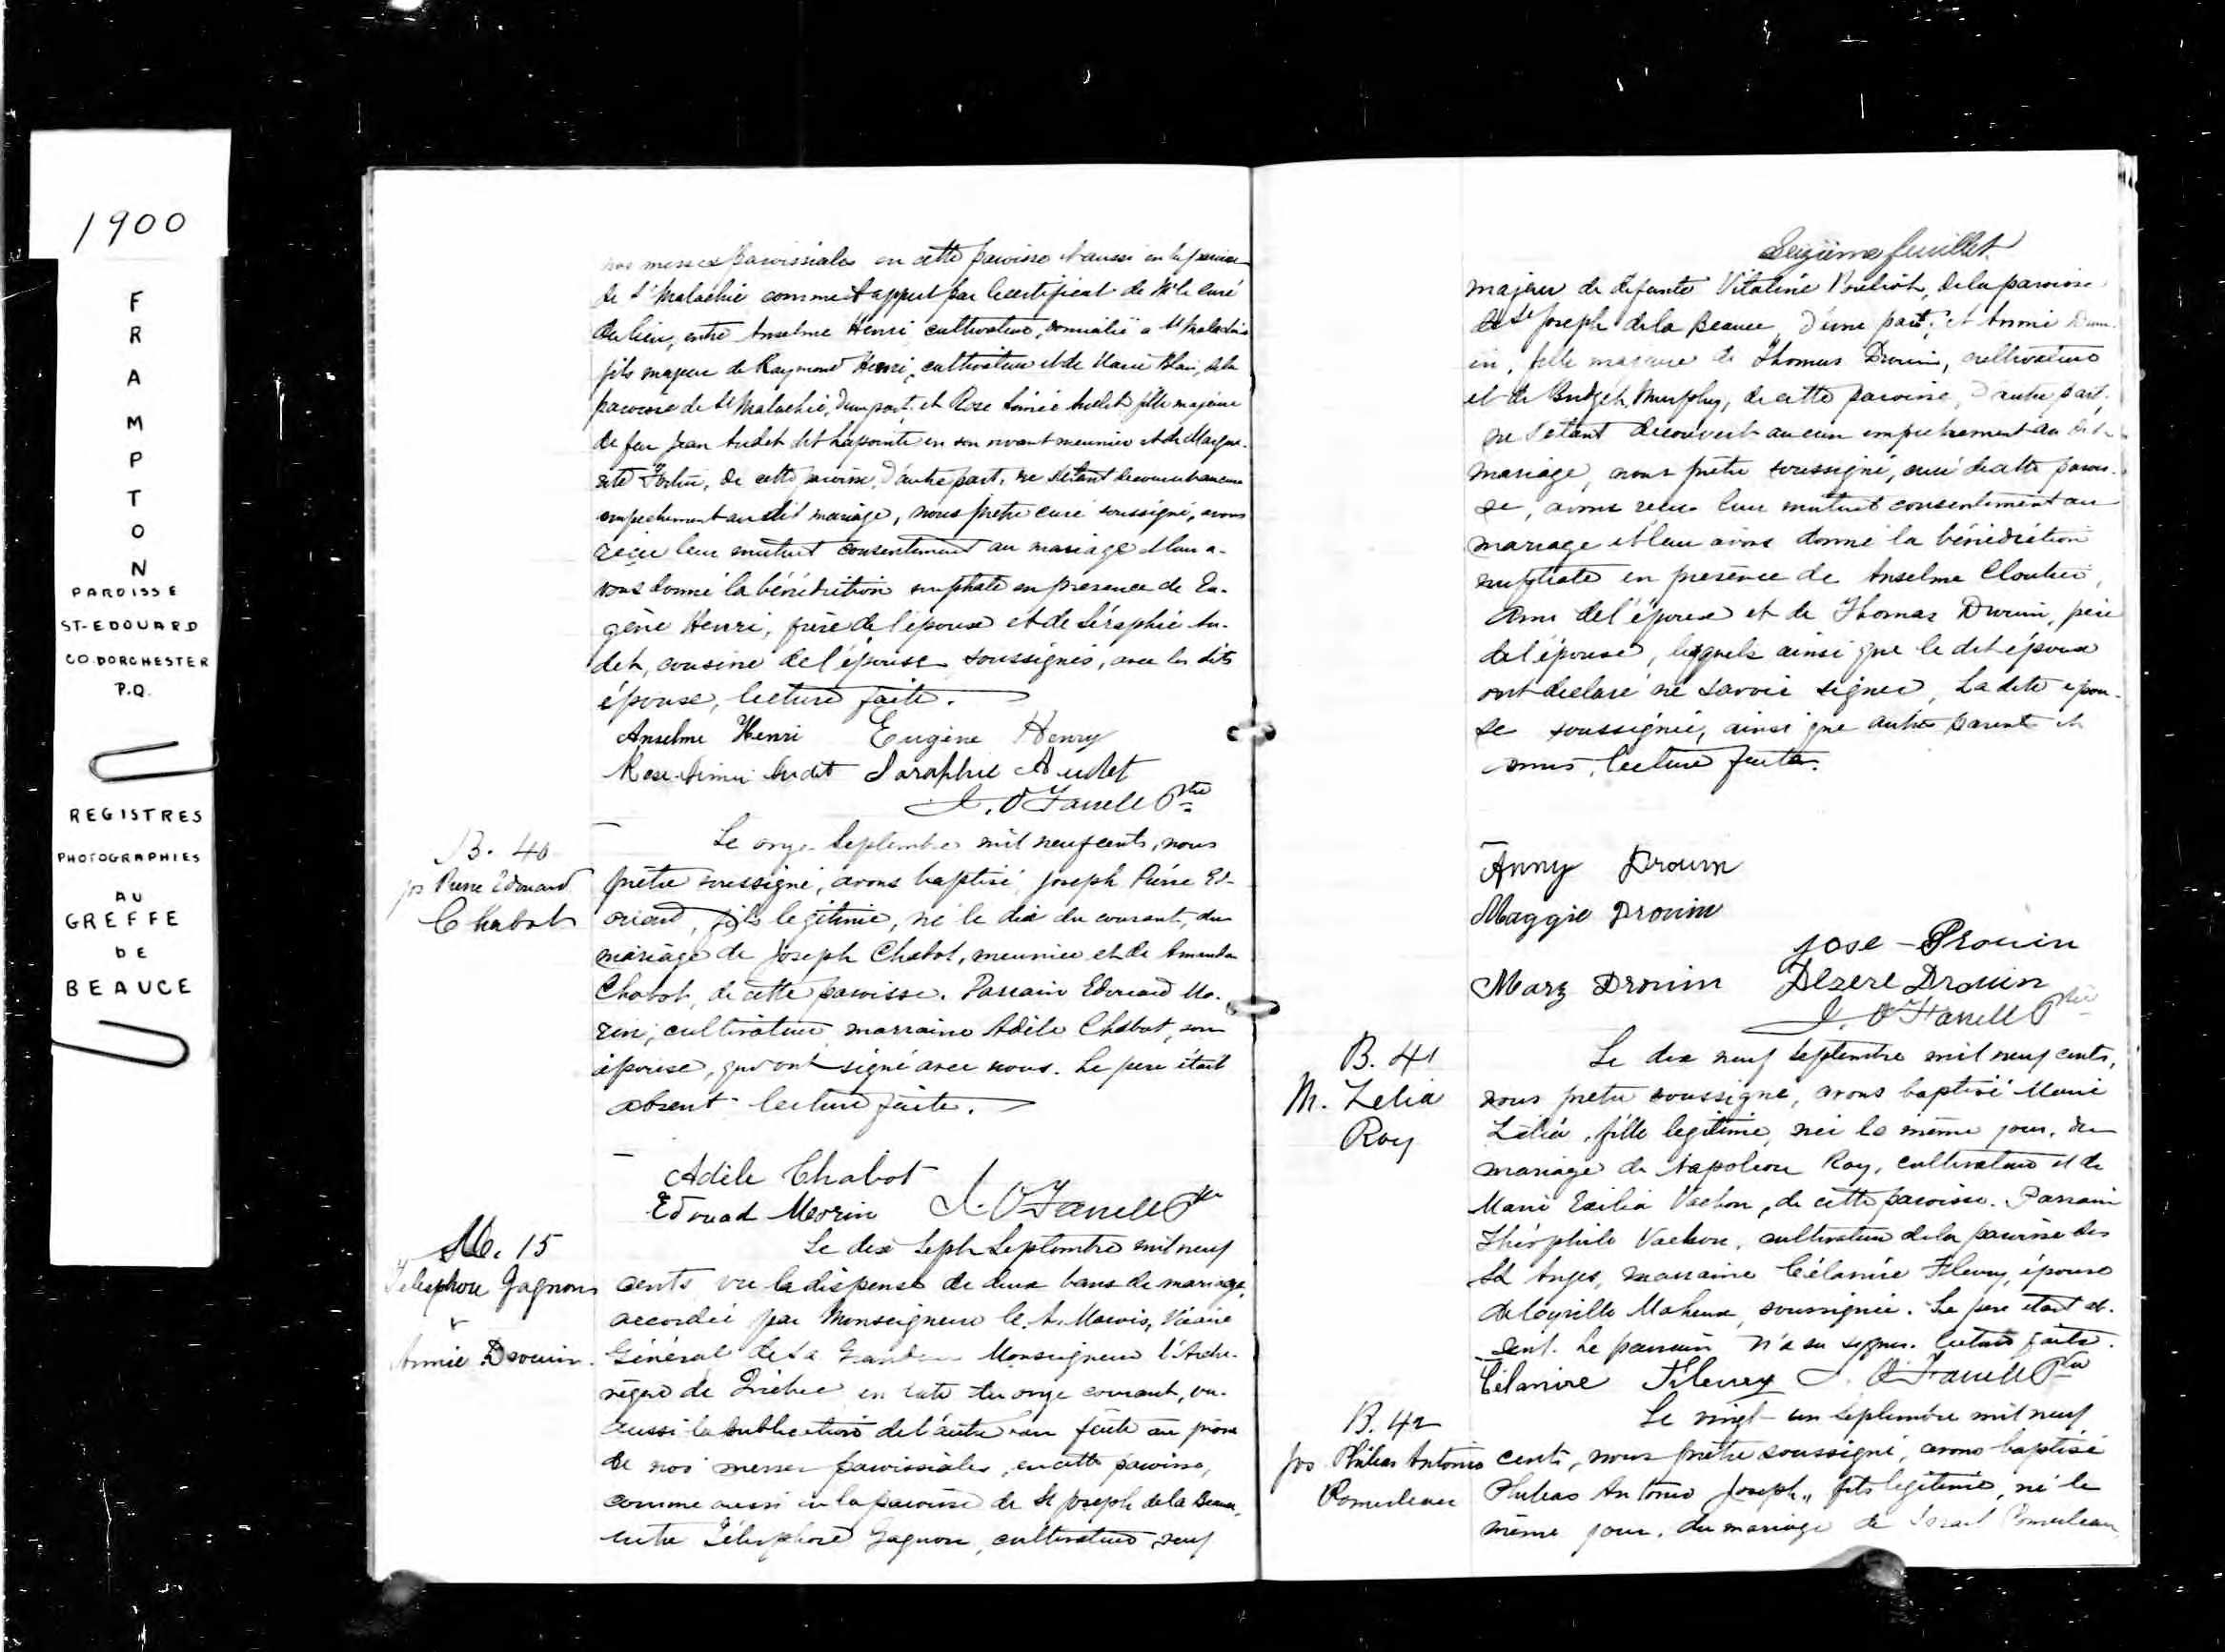 1900
F
R
A
M
P
T
O
N
PAROISSE
ST-EDOUARD
CO. DORCHESTER
P.Q.
REGISTRES
PHOTOGRAPHIES
AU
GREFFE
DE
BEAUCE
nos messes paroissiales en cette paroisse et aussi en la paroisse
de St Malachie comme appert par le certificat de Mr le curé
du lieu, entre Anselme Henri cultivateur, domicilié à St Malachie
fils majeur de Raymond Henri, cultivateur et de Marie Blais, de la
paroisse de St Malachie, d'une part, et Rose Audet fille majeure
de feu Jean Audet dit Lapointe en son vivant meunier et de Margue-
rite Fortin, de cette paroisse, d'autre part, ne s'étant découvert aucun
empêchement au dit mariage, nous prêtre curé soussigné, avons
reçu leur mutuel consentement au mariage et leur a-
vons donné la bénédiction nuptiale en présence de Eu-
gène Henri, frère de l'époux et de Séraphie Au-
det, cousine de l'épouse soussignés, avec les dits
épouse, lecture faite.
Anselme Henri Eugène Henry
Rose Audet Saraphie Audet
J. O'Farrell Ptre
B. 40
Jos Pierre Edouard
Chabot
Le onze Septembre mil neuf cents, nous
prêtre soussigné, avons baptisé Joseph Pierre Ed-
ouard, fils légitime, né le dix du courant, du
mariage de Joseph Chabot, meunier et de Amanda
Chabot, de cette paroisse. Parrain Edouard Mo-
rin, cultivateur, marraine Adèle Chabot, son
épouse, qui ont signé avec nous. Le père était
absent. lecture faite.
Adèle Chabot
Edouad Morin J. O'Farrell Ptre
M. 15
Télesphore Gagnon
&
Annie Drouin.
Le dix Sept Septembre mil neuf
cents vu la dispense de deux bans de mariage,
accordée par Monseigneur C. A. Marois, Vicaire
Général de Sa Grandeur Monseigneur l'Arche-
vêque de Québec en date du onze courant, vu
aussi la publication de l'autre ban faite au prône
de nos messes paroissiales, en cette paroisse,
comme aussi en la paroisse de St Joseph de la Beauce,
entre Télesphore Gagnon, cultivateur, veuf
Seizième feuillet.
majeur de défunte Vitaline Pouliot, de la paroisse
de St Joseph de la Beauce, d'une part; et Annie Drou-
in, fille majeure de Thomas Drouin, cultivateur
et de Bridget Murphy, de cette paroisse, d'autre part;
ne s'étant découvert aucun empêchement au dit
mariage, nous prêtre soussigné, curé de cette parois-
se, avons reçu leur mutuel consentement au
mariage et leur avons donné la bénédiction
nuptiale en présence de Anselme Cloutier,
ami de l'époux et de Thomas Drouin, père
de l'épouse, lesquels ainsi que le dit époux
ont déclaré ne savoir signer, La dite épou-
se soussignée, ainsi que autres parents et
amis, lecture faite.
Anny Drouin
Maggie Drouin
Jose - Drouin
Mary Drouin Dezere Drouin
J. O'Farrell Ptre
B. 41
M. Zelia
Roy
Le dix neuf Septembre mil neuf cents,
nous prêtre soussigné, avons baptisé Marie
Zélia, fille légitime, née le même jour, du
mariage de Napoléon Roy, cultivateur et de
Marie Exilia Vachon, de cette paroisse. Parrain
Théophile Vachon, cultivateur de la paroisse des
Sts Anges, marraine Célanire Fleury, épouse
de Cyrille Maheux, soussignée. Le père était ab-
sent. Le parrain n'a su signer. lecture faite.
Célanire Fleury J. O'Farrell Ptre
B. 42
Jos Philias Antonio
Pomerleau
Le vingt-un Septembre mil neuf
cents, nous prêtre soussigné, avons baptisé
Philias Antonio Joseph, fils légitime, né le
même jour, du mariage de Israel Pomerleau,